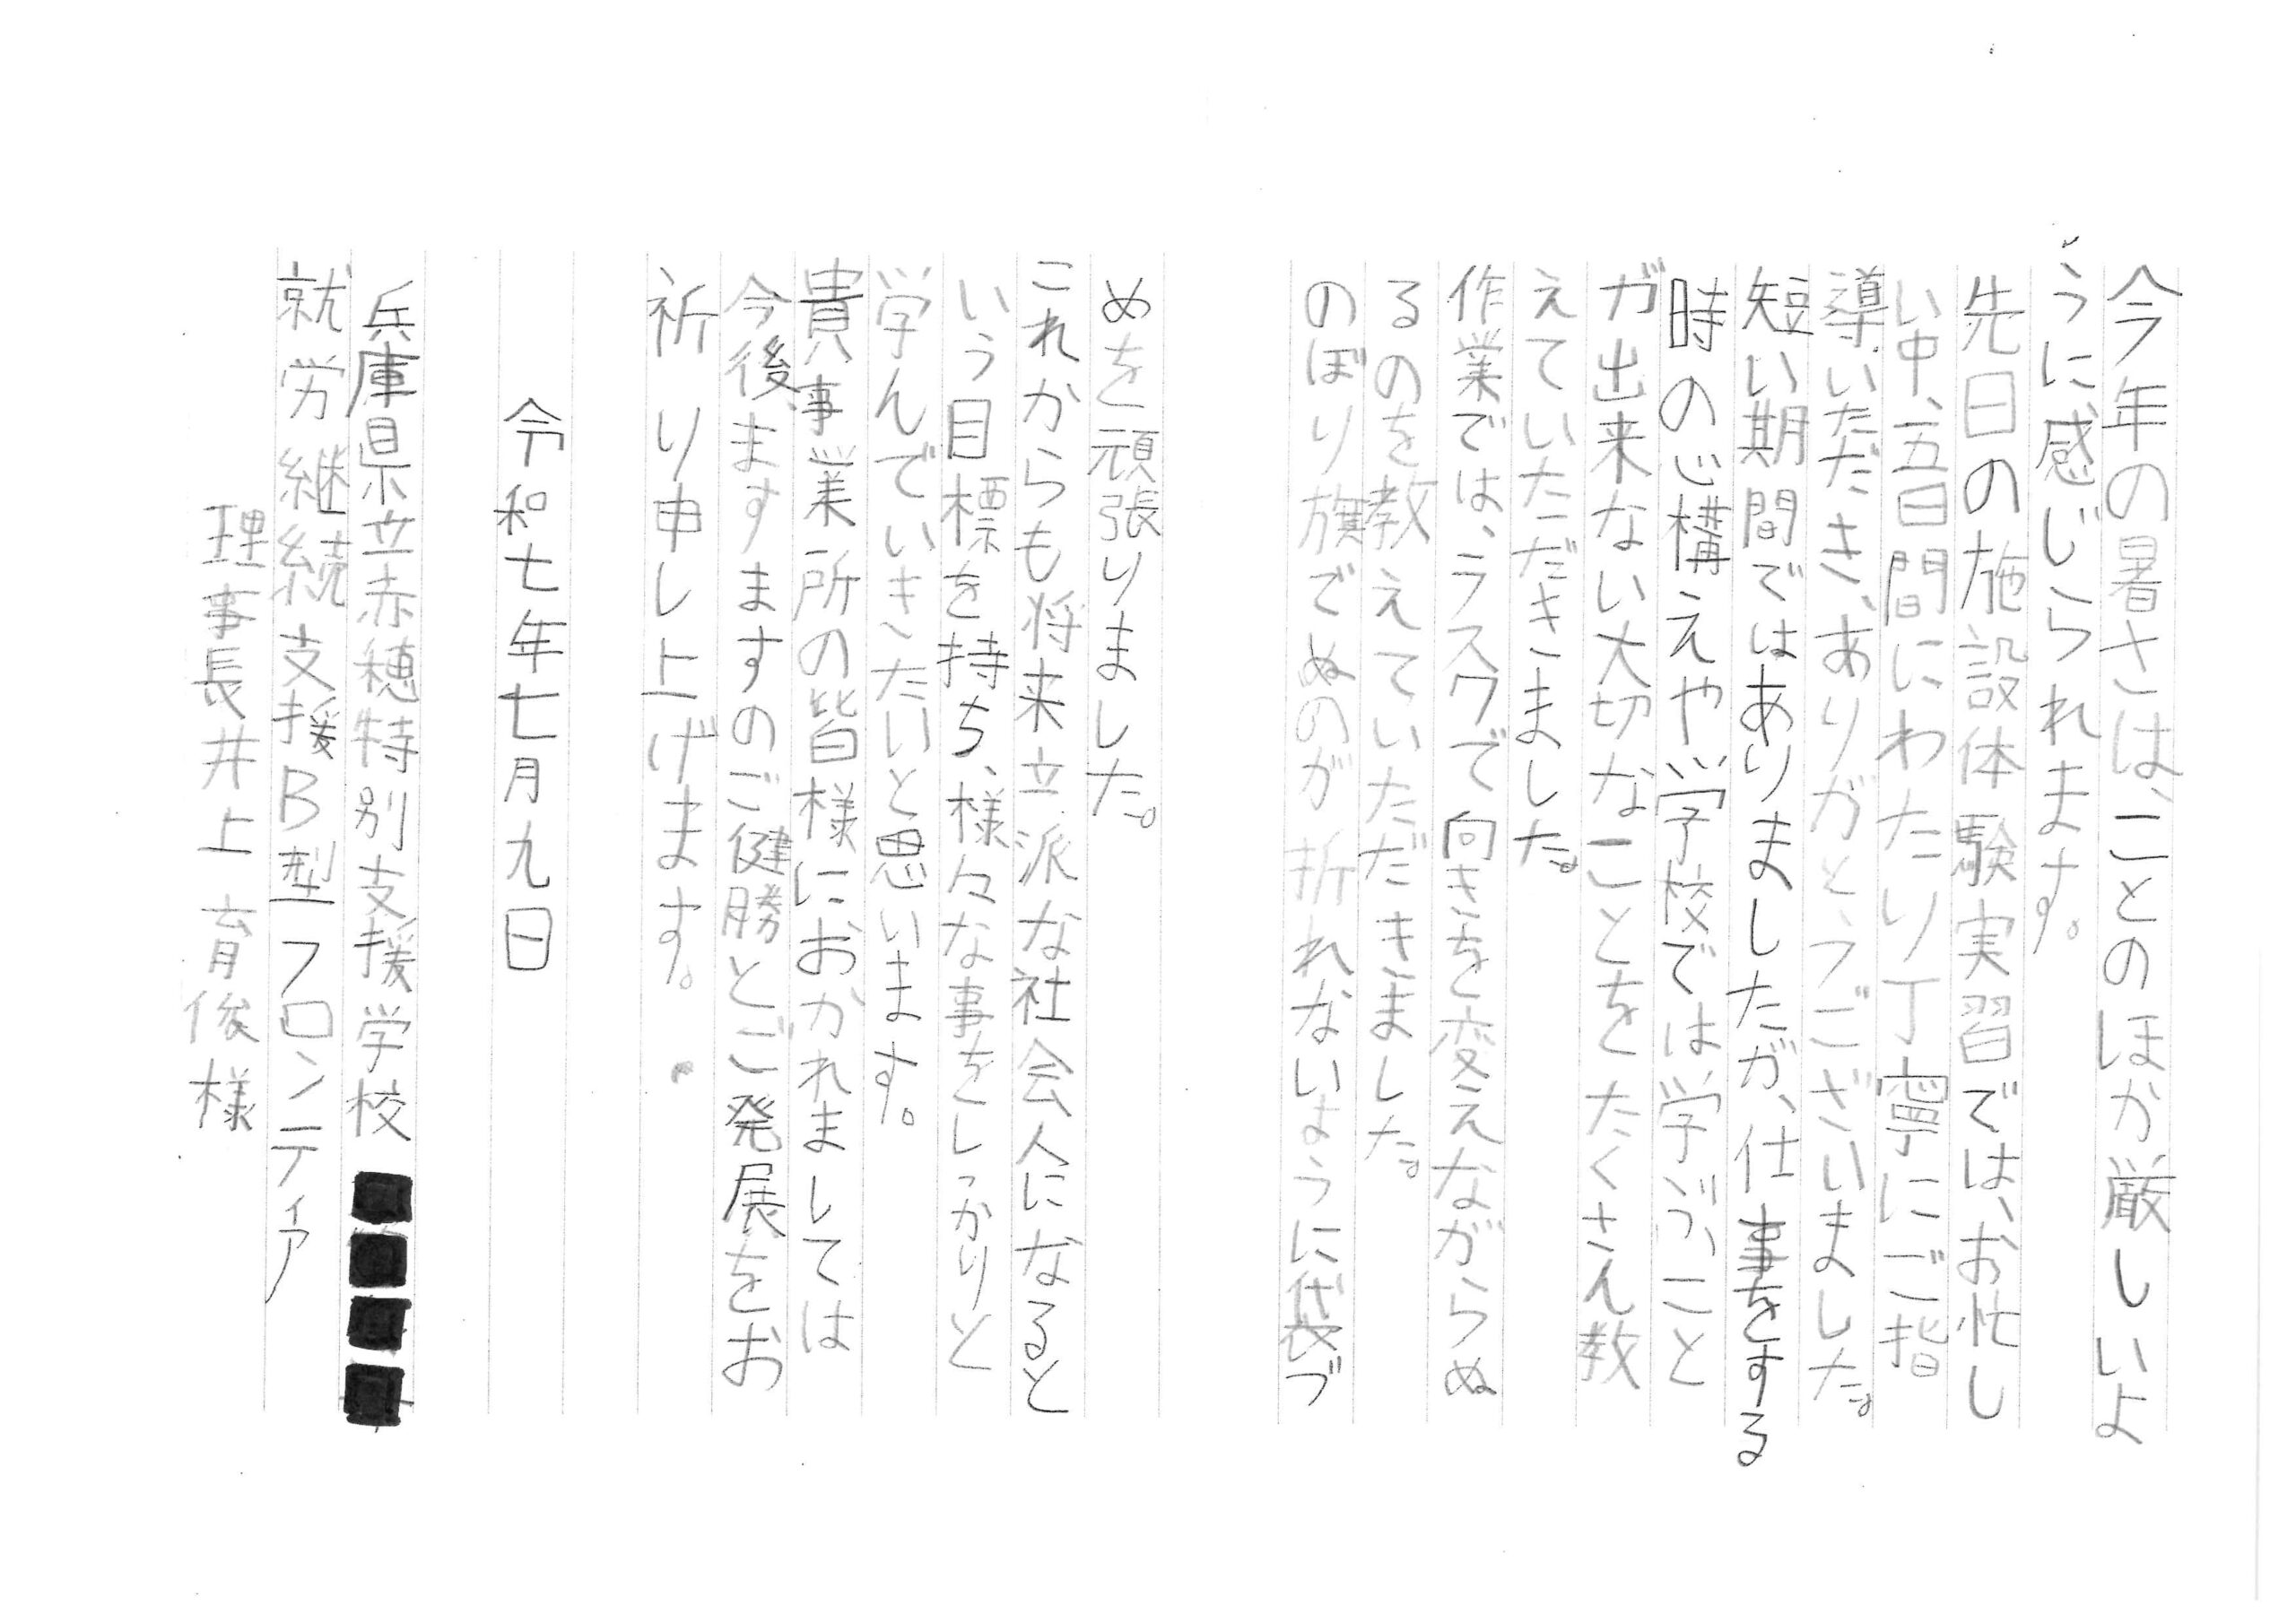 今年の暑さは、ことのほか厳しいよ
うに感じられます。
先日の施設体験実習では、お忙し
い中、五日間にわたり丁寧にご指
導いただき、ありがとうございました。
短い期間ではありましたが、仕事をする
時の心構えや学校では学ぶこと
ガ出来ない大切なことをたくさん教
えていただきました。
作業では、ラスクで向きを変えながらぬ
るのを教えていただきました。
のぼり旗でぬのが折れないように袋づ
めを頑張りました。
これからも将来立派な社会人になると
いう目標を持ち、様々な事をしっかりと
学んでいきたいと思います。
貴事業所の皆様におかれましては
今後ますますのご健勝とご発展をお
祈り申し上げます。
令和七年七月九日
兵庫県立赤穂特別支援学校
就労継続支援B型フロンティア
理事長井上育俊様